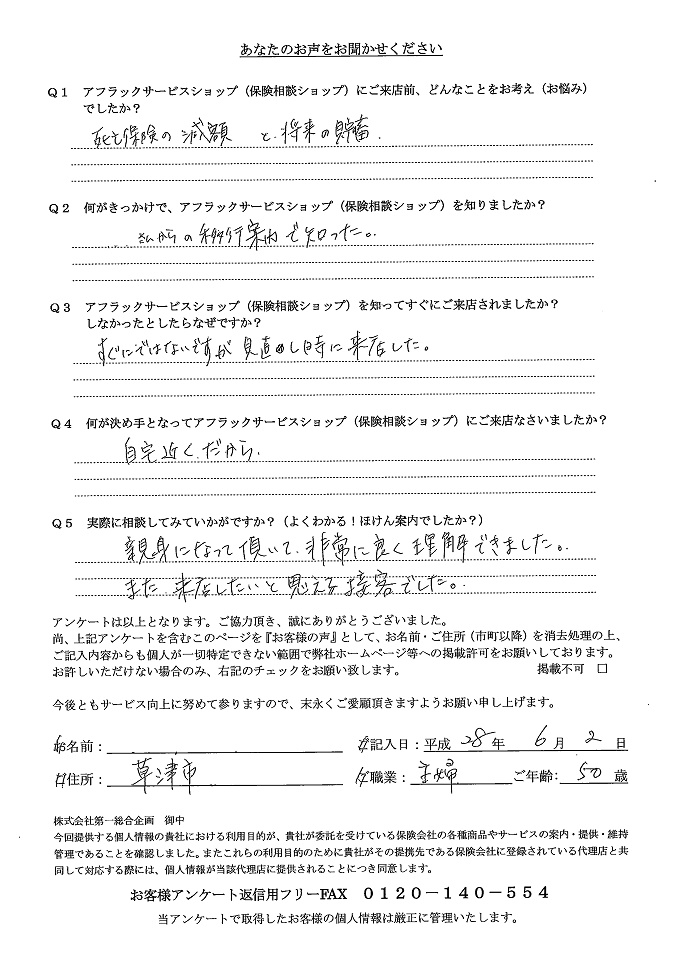 あなたのお声をお聞かせください
Q1 アフラックサービスショップ（保険相談ショップ）にご来店前、どんなことをお考え（お悩み）
でしたか？
死亡保険の減額 と、将来の貯蓄．
Q2 何がきっかけで、アフラックサービスショップ（保険相談ショップ）を知りましたか？
さんからの移行案内で知った。
Q3 アフラックサービスショップ（保険相談ショップ）を知ってすぐにご来店されましたか？
しなかったとしたらなぜですか？
すぐにではないですが 見直し時に来店した。
Q4 何が決め手となってアフラックサービスショップ（保険相談ショップ）にご来店なさいましたか？
自宅近くだから．
Q5 実際に相談してみていかがですか？（よくわかる！ほけん案内でしたか？）
親身になって頂いて、非常に良く理解できました。
また、来店したいと思える接客でした。
アンケートは以上となります。ご協力頂き、誠にありがとうございました。
尚、上記アンケートを含むこのページを『お客様の声』として、お名前・ご住所（市町以降）を消去処理の上、
ご記入内容からも個人が一切特定できない範囲で弊社ホームページ等への掲載許可をお願いしております。
お許しいただけない場合のみ、右記のチェックをお願い致します。 掲載不可 □
今後ともサービス向上に努めて参りますので、末永くご愛顧頂きますようお願い申し上げます。
名前： 記入日：平成 28 年 6 月 2 日
住所： 草津市 職業： 主婦 ご年齢： 50 歳
株式会社第一総合企画 御中
今回提供する個人情報の貴社における利用目的が、貴社が委託を受けている保険会社の各種商品やサービスの案内・提供・維持
管理であることを確認しました。またこれらの利用目的のために貴社がその提携先である保険会社に登録されている代理店と共
同して対応する際には、個人情報が当該代理店に提供されることにつき同意します。
お客様アンケート返信用フリーFAX 0120－140－554
当アンケートで取得したお客様の個人情報は厳正に管理いたします。